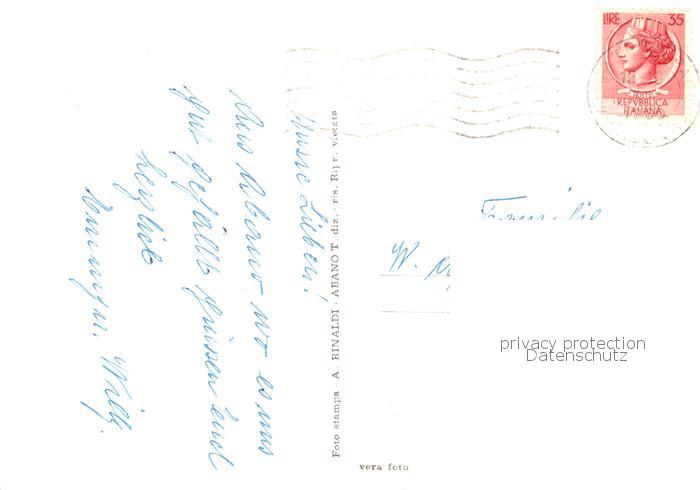 LIRE 35
POSTE
REPVBBLICA
ITALIANA
Meine Lieben!
Aus Abano, wo es uns
gut gefällt grüssen Euch
herzlich
u. Willy.
Foto stampa - A. RINALDI - ABANO T. diz. - ris. Ripr. vietata
Familie
W.
vera foto
privacy protection
Datenschutz